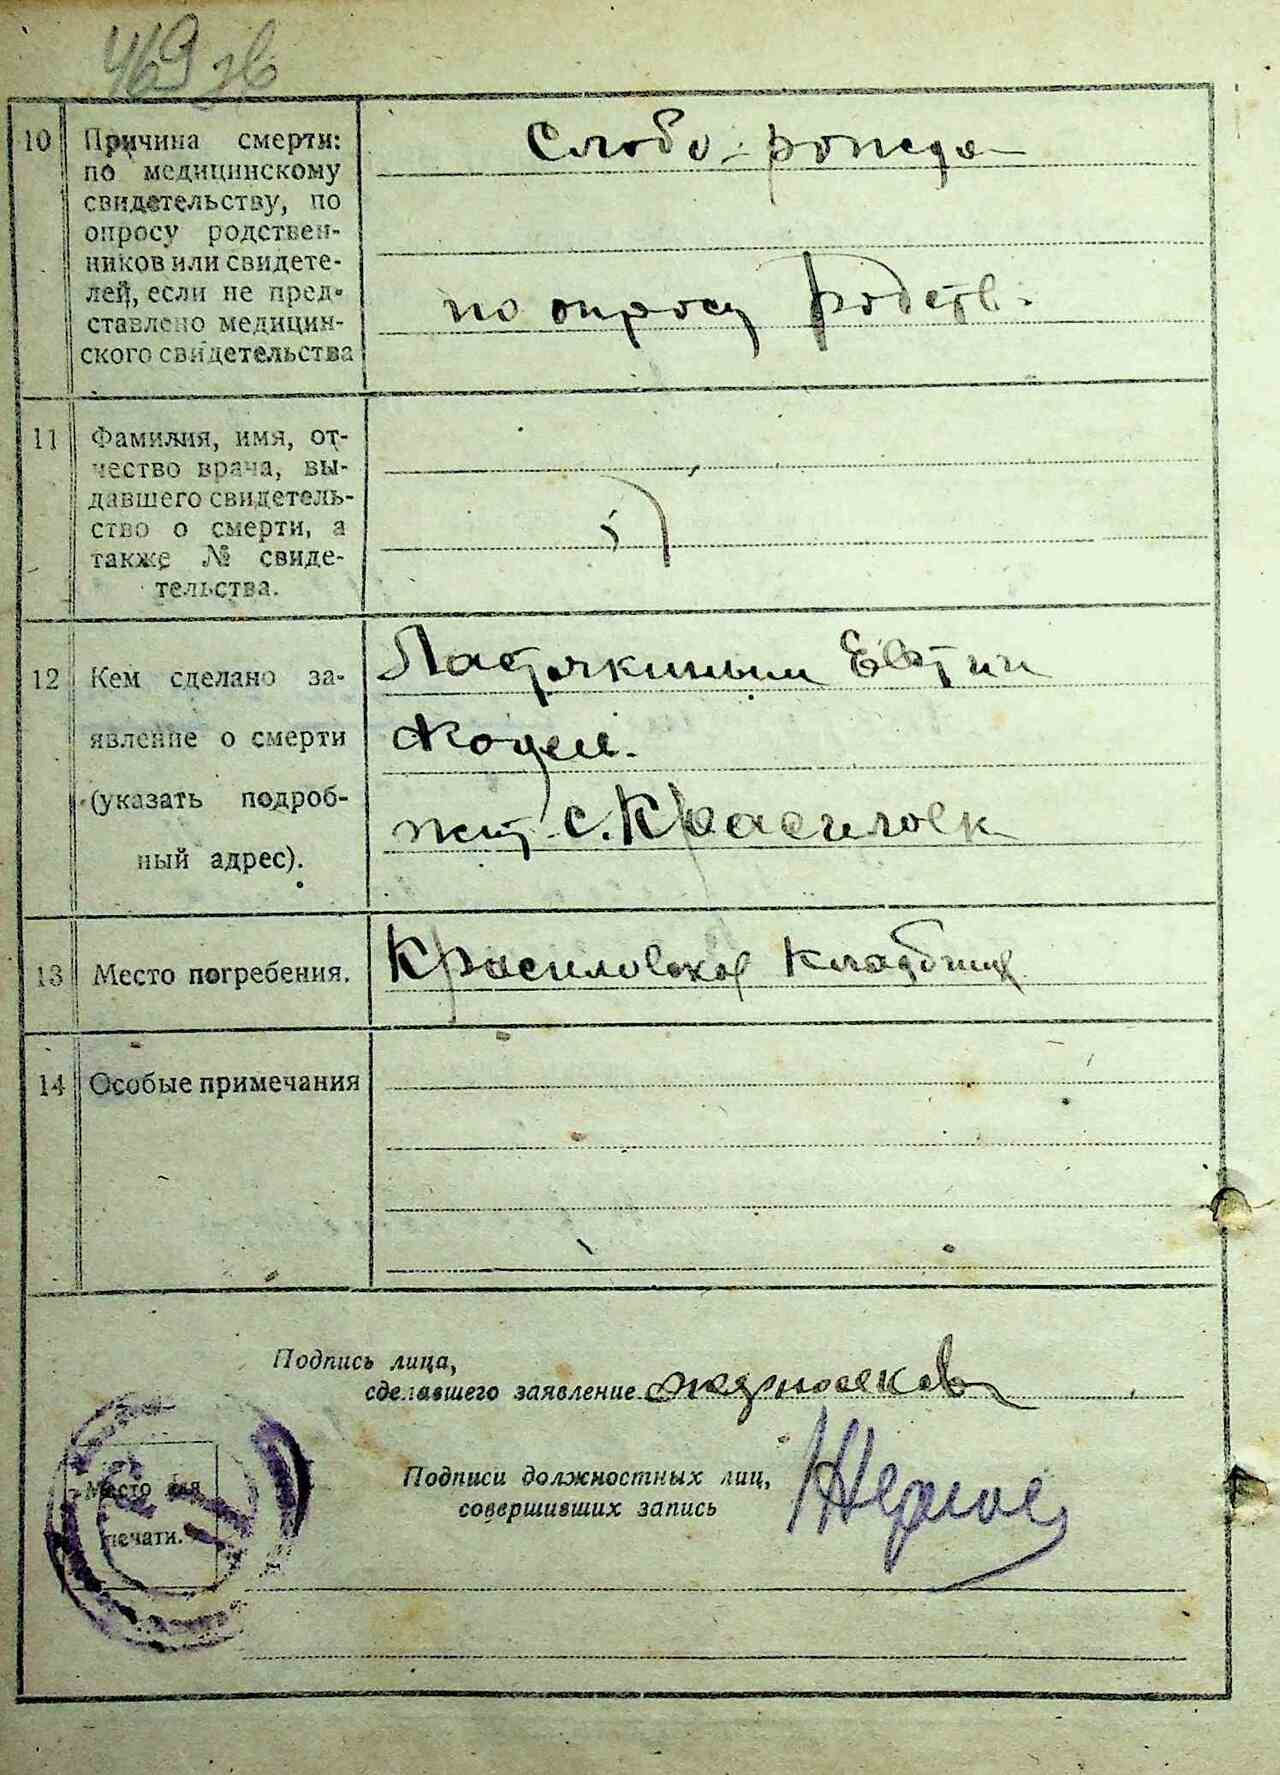 469 зв
10 Причина смерти:
по медицинскому
свидетельству, по
опросу родствен-
ников или свидете-
лей, если не пред-
ставлено медицин-
ского свидетельства
Слобо-рожде
по опросу родств.
11 Фамилия, имя, от-
чество врача, вы-
давшего свидетель-
ство о смерти, а
также № свиде-
тельства.
12 Кем сделано за-
явление о смерти
(указать подроб-
ный адрес).
с. Красиловк
13 Место погребения.
Красиловское кладбище
14 Особые примечания
Подпись лица,
сделавшего заявление
Подписи должностных лиц,
совершивших запись
Место для
печати.